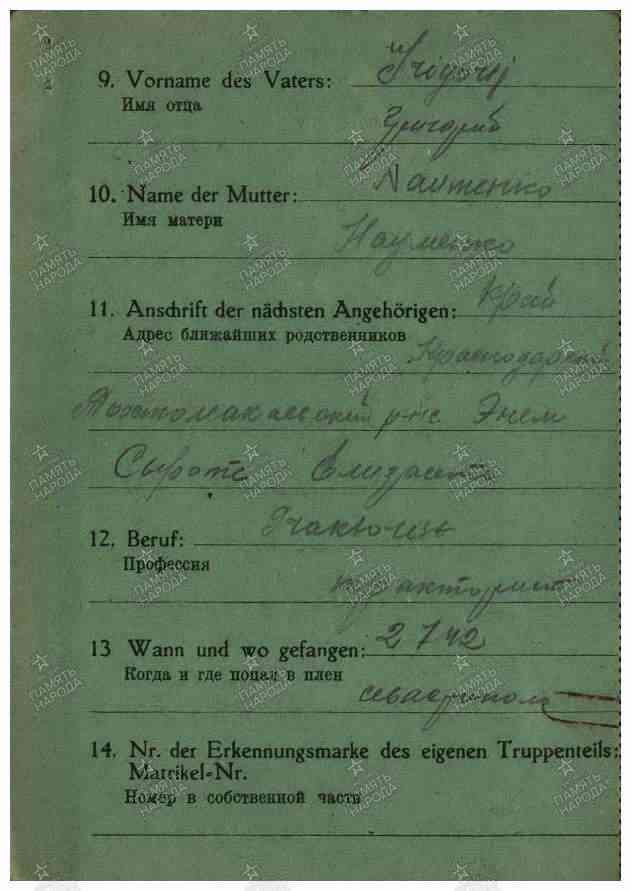 9. Vorname des Vaters: Grigorij
Имя отца
Григорий
10. Name der Mutter: Naumenko
Имя матери
Науменко
11. Anschrift der nächsten Angehörigen: Край
Адрес ближайших родственников
Краснодарский
р-н с Энем
Сырота
12. Beruf: Traktorist
Профессия
тракторист
13 Wann und wo gefangen: 2 7 42
Когда и где попал в плен
севастополь
14. Nr. der Erkennungsmarke des eigenen Truppenteils:
Matrikel-Nr.
Номер в собственной части
ПАМЯТЬ НАРОДА